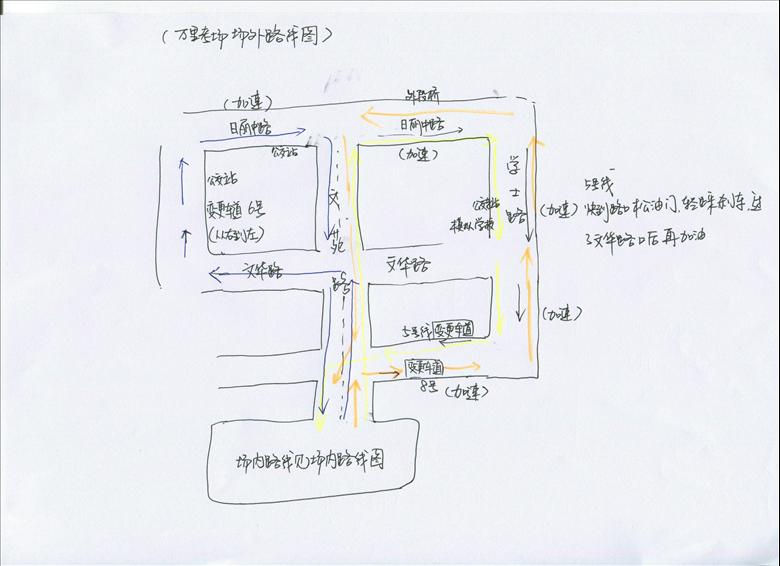 (万里考场场外路线图)
(加速)
外段桥
日丽中路
日丽中路
公交站
(加速)
公交站
变更车道 6号
(从右到左)
文
路
学
士
路
公交站
模拟学校
(加速)
5号线
快到路口松油门,轻踩刹车,过
了文华路口后再加油
文华路
文华路
(加速)
5号线 变更车道
变更车道
8号 (加速)
场内路线见场内路线图